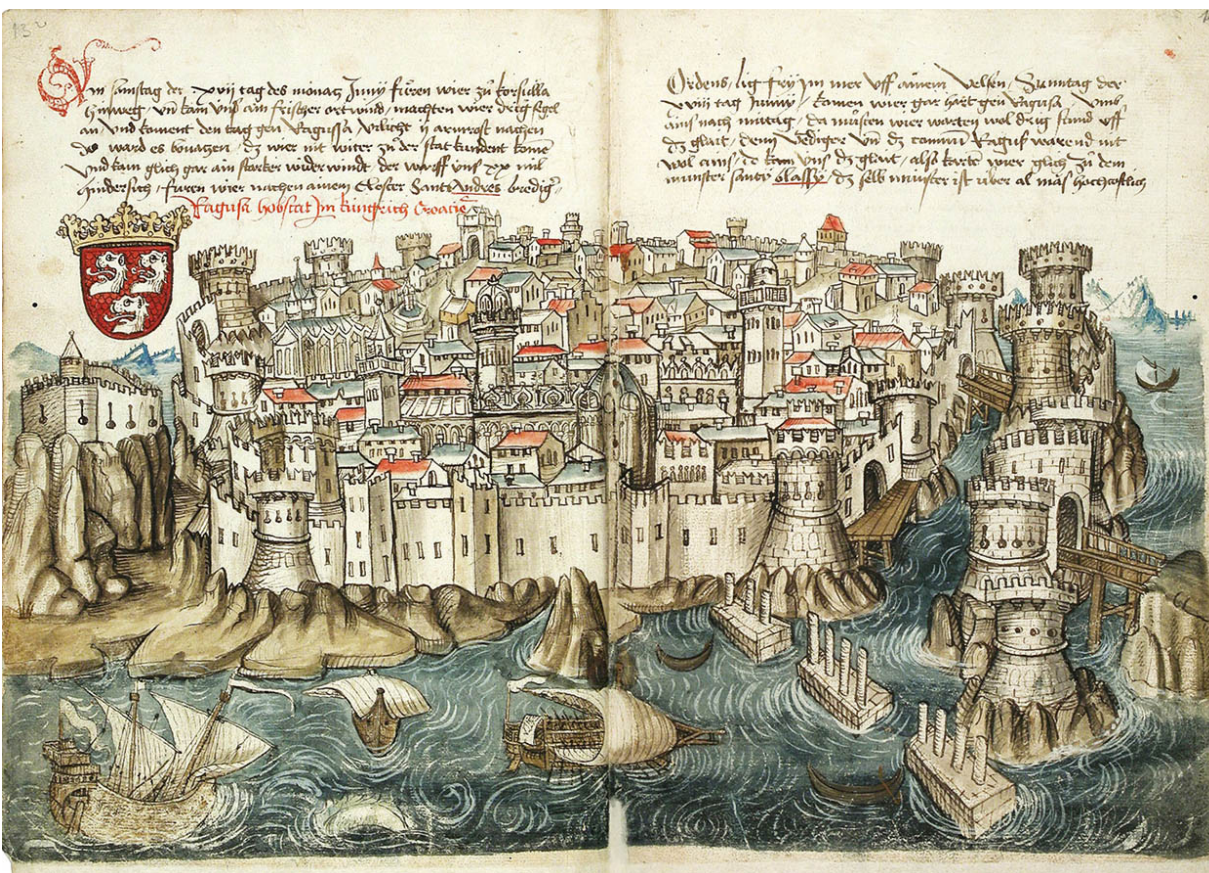 Am samstag der xvij tag des monatz Junÿ fůren wier zů korsulla
hinweg vn kam vns ain frischer ort wind, machten wier drig segel
an vnd koment den tag gen Ragussa velicht ij armrost nachen
Do ward es bonatzen, dz wier nit witer zů der stat kundent kome
vnd kam glich gar ain starcker widerwindt der warff vns xx mil
hindersich, fůren wier nachen ainem Closter Santt Andres bredig
Ragusa hobstat Jm kungrich Croacie
Ordens, lig frey Jm mer vff ainem velsen, Sunntag der
xviij tag Junnÿ, komen wier gar hart gen Ragusa, vmb
ains nach mittag, da můsten wier warten wol drig stund vff
dz glait, denn vn dz comun Ragus warend nit
wol ains, do kam vns dz glait, also karte wier glich zů dem
munster santÿ blassÿ, dz selb münster ist über al mäs hochcostlich